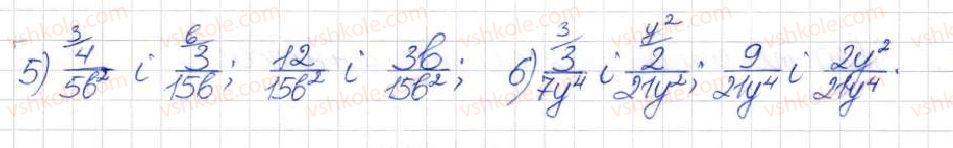 5) ³⁄ 4/5b² і ᵇ⁄ 3/15b; 12/15b² і 3b/15b²; 6) ³⁄ 3/7y⁴ і ʸ²⁄ 2/21y²; 9/21y⁴ і 2y²/21y⁴.